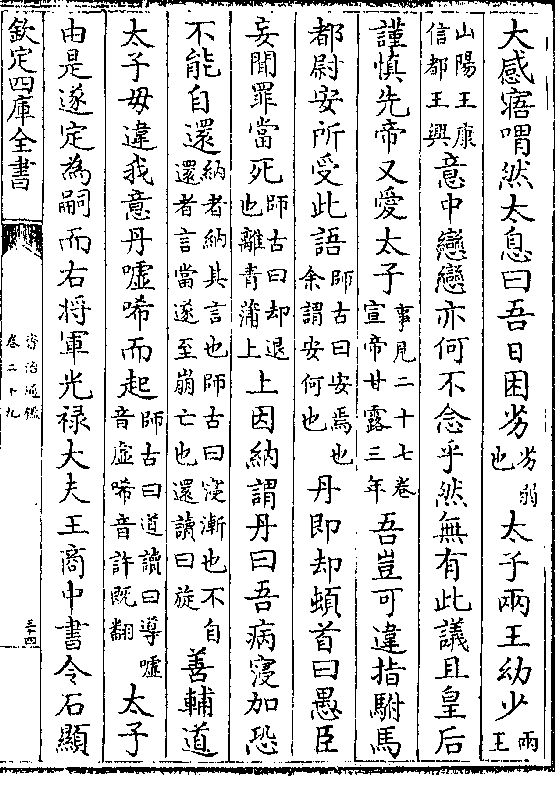 大感寤喟然太息曰吾日困劣劣弱也太子兩王幼少兩王
山陽王康信都王興意中戀戀亦何不念乎然無有此議且皇后
謹慎先帝又愛太子事見二十七卷宣帝甘露三年吾豈可違指駙馬
都尉安所受此語師古曰安焉也余謂安何也丹即却頓首曰愚臣
妄聞罪當死師古曰却退也離青蒲上上因納謂丹曰吾病寖加恐
不能自還納者納其言也師古曰寖漸也不自還者言當遂至崩亡也還讀曰旋善輔道
太子毋違我意丹噓唏而起師古曰道讀曰導噓音虛唏音許既翻太子
由是遂定為嗣而右將軍光禄大夫王商中書令石顯
欽定四庫全書
資治通鑑
卷二十九
三十四